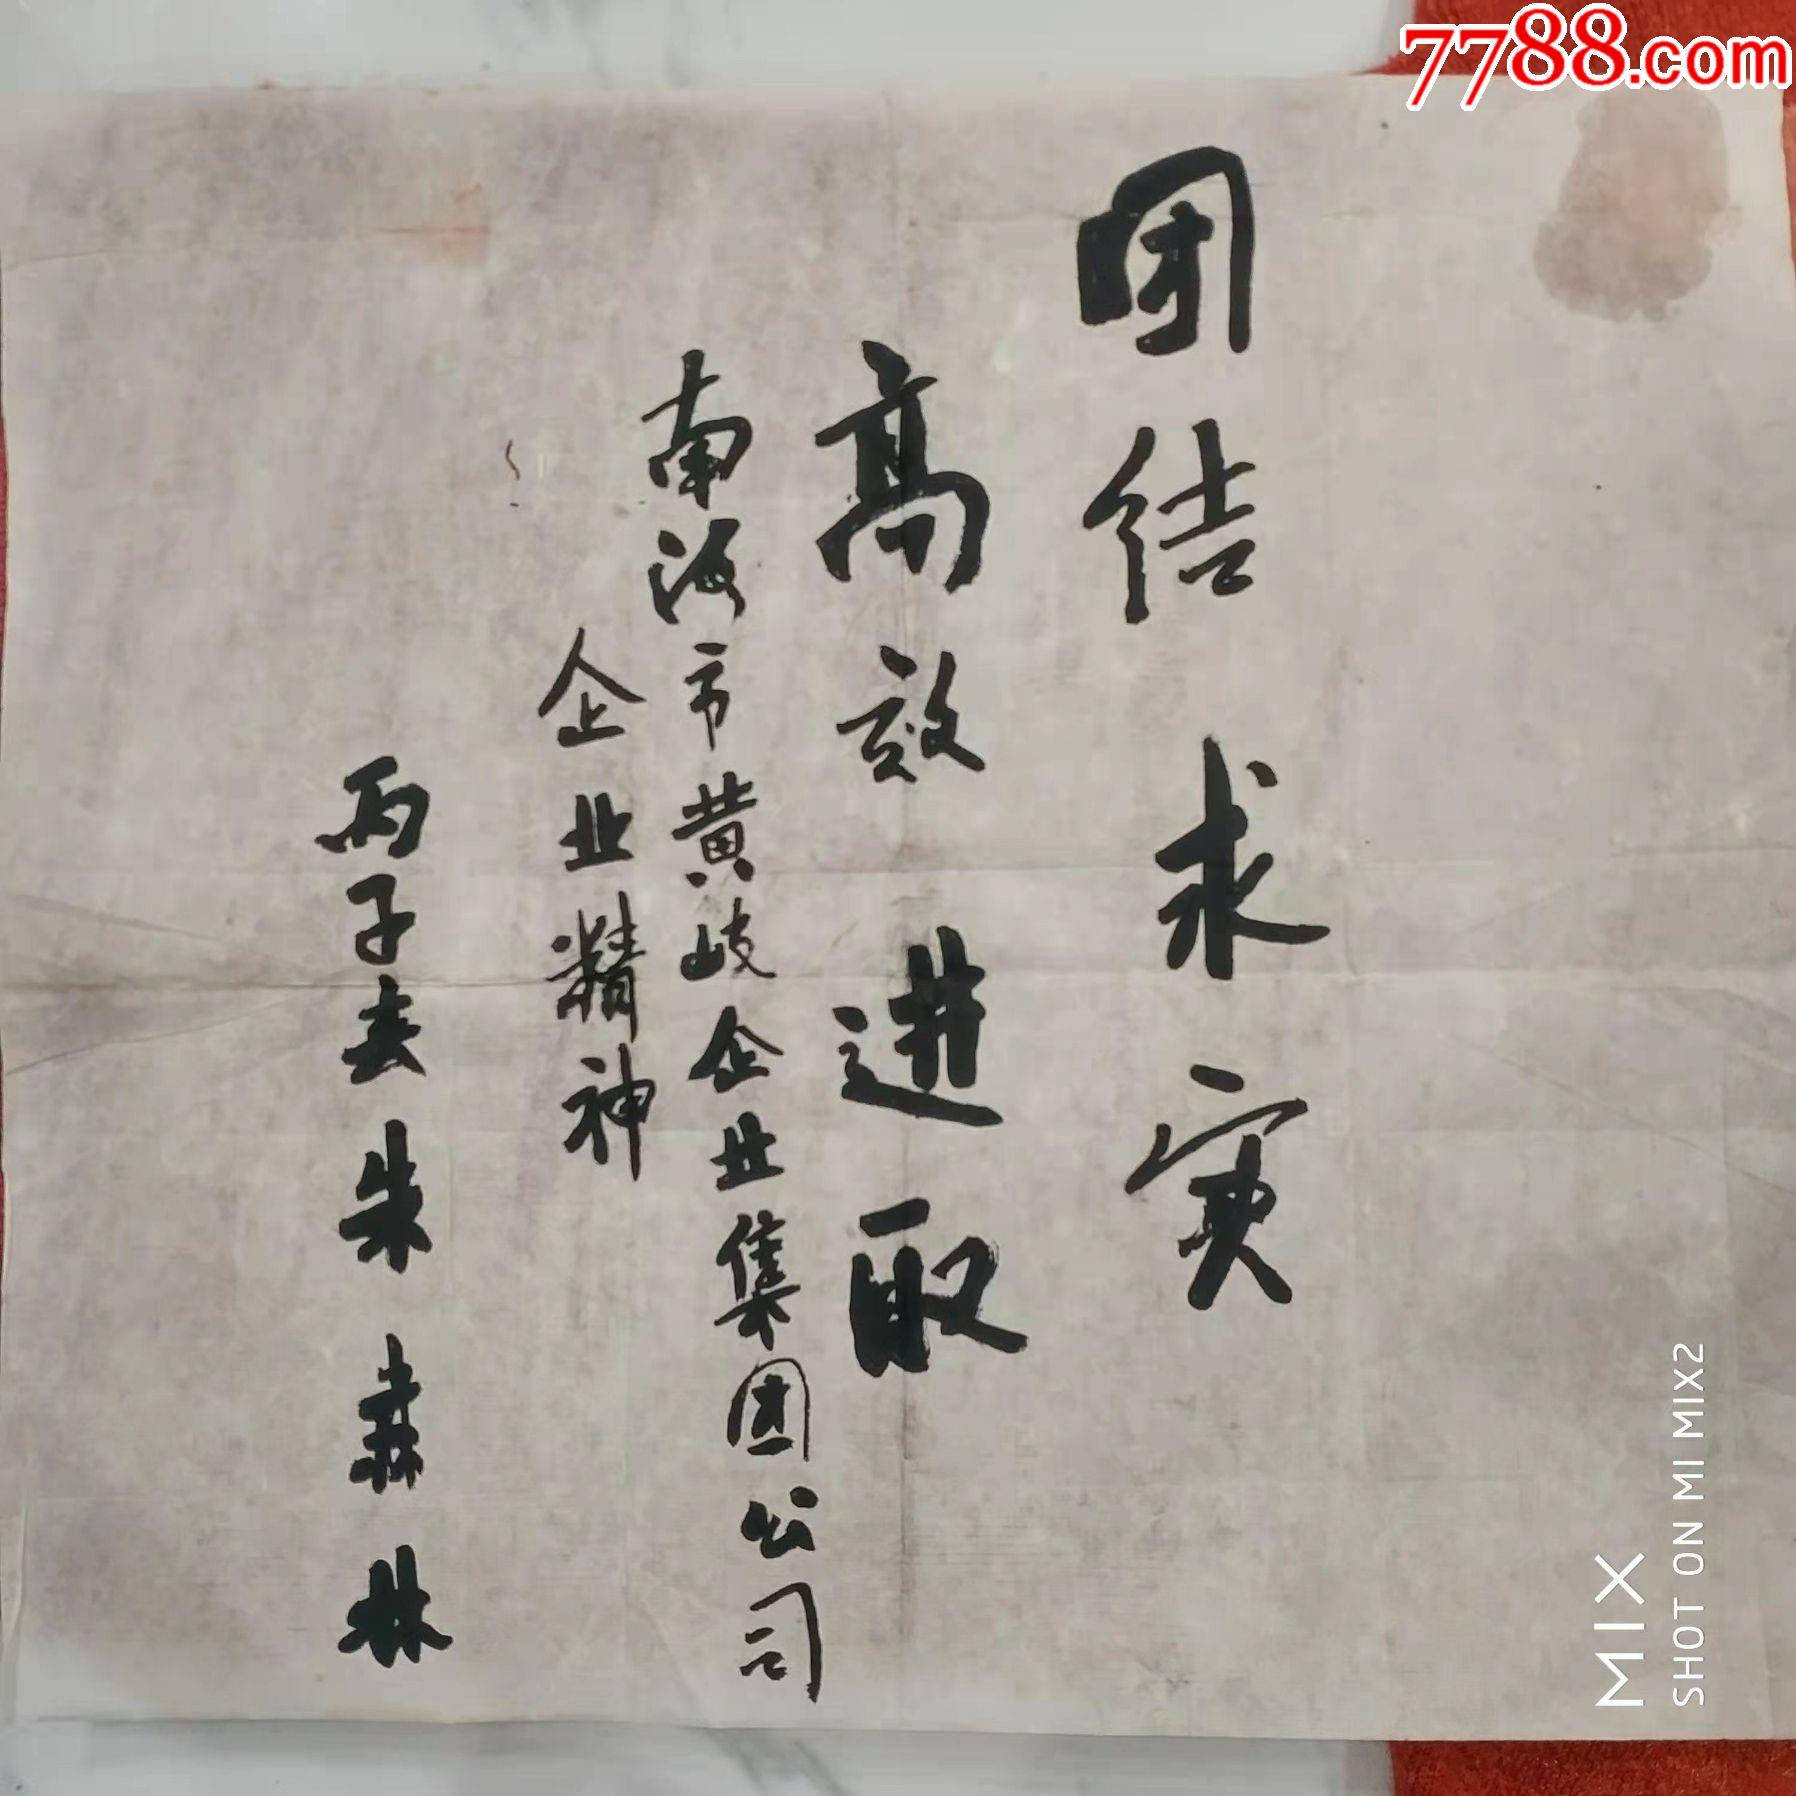 7788.com
团结求实
高效进取
南海市黄岐企业集团公司
企业精神
丙子春朱森林
MIX
SHOT ON MI MIX2